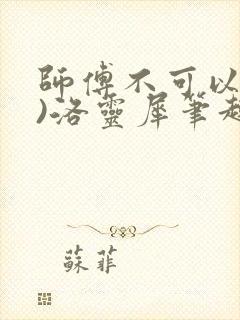 師傅不可以
)洛靈犀筆趣
蘇菲